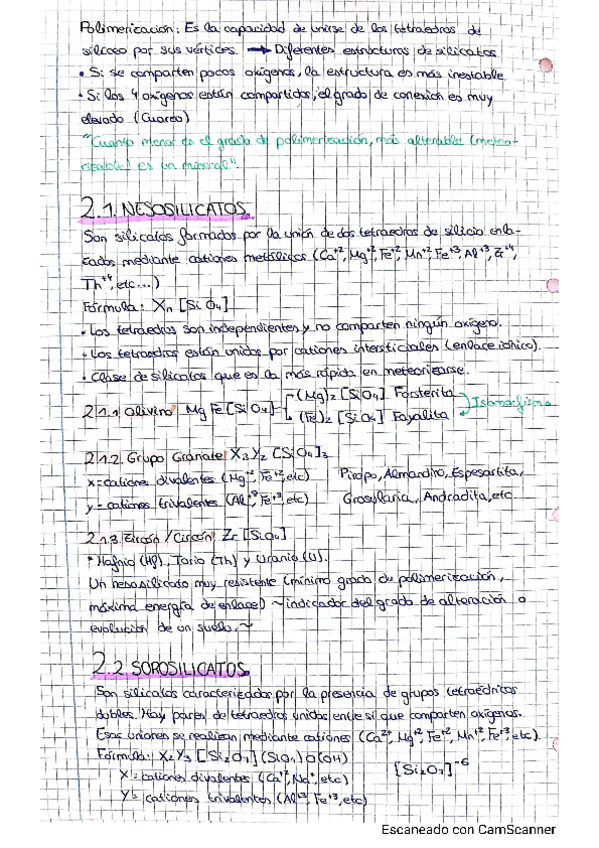 Polimerización: Es la capacidad de unirse de los tetraedros de
silicio por sus vértices. → Diferentes estructuras de silicatos
• Si se comparten pocos oxígenos, la estructura es más inestable
• Si los 4 oxígenos están compartidos, el grado de conexión es muy
elevado (Cuarzo)
"Cuanto menor es el grado de polimerización, más alterable (meteo-
rizable) es un mineral".
2.1. NESOSILICATOS
Son silicatos formados por la unión de dos tetraedros de silicio enla-
zados mediante cationes metálicos (Ca⁺², Mg⁺², Fe⁺², Mn⁺², Fe⁺³, Al⁺³, Zr⁺⁴,
Th⁺⁴, etc...)
Fórmula: Xn [SiO₄]
• Los tetraedros son independientes y no comparten ningún oxígeno.
• Los tetraedros están unidos por cationes intersticiales (enlace iónico).
• Clase de silicatos que es la más rápida en meteorizarse.
2.1.1 Olivino Mg Fe [SiO₄] (Mg)₂ [SiO₄] Forsterita
(Fe)₂ [SiO₄] Fayalita Isomorfismo
2.1.2. Grupo Granate X₃ Y₂ [SiO₄]₃
x = cationes divalentes (Mg⁺², Fe⁺², etc) Piropo, Almandino, Espesartita,
y = cationes trivalentes (Al⁺³, Fe⁺³, etc) Grosularia, Andradita, etc
2.1.3. Zircón / Circón Zr [SiO₄]
* Hafnio (Hf), Torio (Th) y Uranio (U).
Un nesosilicato muy resistente (mínimo grado de polimerización,
máxima energía de enlace) ~ indicador del grado de alteración o
evolución de un suelo. ~
2.2. SOROSILICATOS
Son silicatos caracterizados por la presencia de grupos tetraédricos
dobles. Hay pares de tetraedros unidos entre sí que comparten oxígenos.
Esas uniones se realizan mediante cationes (Ca²⁺, Mg⁺², Fe⁺², Mn⁺², Fe⁺³, etc).
Fórmula: X₄ Y₃ [Si₂O₇] (SiO₄) O (OH) [Si₂O₇]⁻⁶
X = cationes divalentes (Ca⁺², Na⁺, etc)
Y = cationes trivalentes (Al⁺³, Fe⁺³, etc)
Escaneado con CamScanner